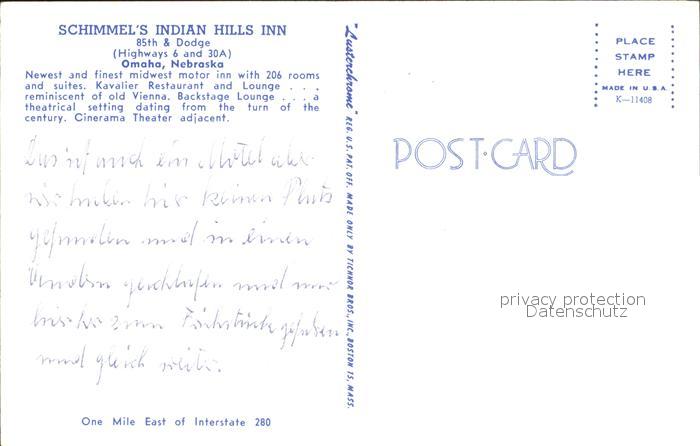 SCHIMMEL'S INDIAN HILLS INN
85th & Dodge
(Highways 6 and 30A)
Omaha, Nebraska
Newest and finest midwest motor inn with 206 rooms
and suites. Kavalier Restaurant and Lounge . . .
reminiscent of old Vienna. Backstage Lounge . . . a
theatrical setting dating from the turn of the
century. Cinerama Theater adjacent.
Das ist auch ein Motel aber
wir haben hier keinen Platz
gefunden und in einen
geschlafen und nur
hierher zum Frühstück gefahren
und gleich weiter.
One Mile East of Interstate 280
"Lusterchrome" REG. U.S. PAT. OFF. MADE ONLY BY TICHNOR BROS., INC., BOSTON 15, MASS.
PLACE
STAMP
HERE
MADE IN U.S.A.
K—11408
POST·CARD
privacy protection
Datenschutz